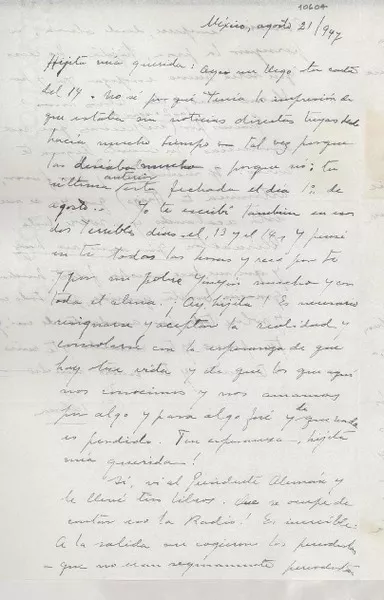 10604
México, agosto 21/947
Hijita mía querida: Ayer me llegó tu carta
del 14. No sé por qué tenía la impresión de
que estaba sin noticias directas tuyas desde
hacía mucho tiempo tal vez porque
las deseaba mucho porque no: tu
última anterior está fechada el día 1º de
agosto. Yo te escribí también en esos
dos terribles días el 13 y el 14, y pensé
en ti todas las horas y recé por ti
y por mi pobre mucho y con
toda el alma. ¡Ay, hijita! Es necesario
resignarse y aceptar la realidad y
consolarse con la esperanza de que
hay otra vida y de que los que aquí
nos conocimos y nos amamos
por algo y para algo fué y de que nada
es perdido. Ten esperanza, hijita
mía querida!
Sí, vi al Presidente Alemán y
le llevé tus libros. Que se ocupe de
contar con la Radio! Es increíble.
A la salida me cogieron los periodistas
que no eran seguramente periodistas